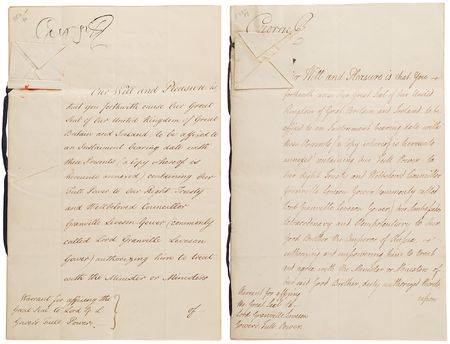 George R
Our Will and Pleasure is
that you forthwith cause Our Great
Seal of Our United Kingdom of Great
Britain and Ireland, to be affixed to
an Instrument bearing date with
these Presents (a Copy whereof is
hereunto annexed) containing Our
Full Power to Our Right Trusty
and Wellbeloved Councillor
Granville Leveson Gower (commonly
called Lord Granville Leveson
Gower) authorizing him to treat
with the Minister or Ministers
of
Warrant for affixing the
Great Seal to Lord G. L.
Gower's Full Power.
George R
Our Will and Pleasure is that You
forthwith cause Our Great Seal of Our United
Kingdom of Great Britain and Ireland to be
affixed to an Instrument bearing date with
these Presents, (a Copy whereof is hereunto
annexed) containing Our Full Power to
Our Right Trusty and Welbeloved Councillor
Granville Leveson Gower (commonly called
Lord Granville Leveson Gower) Our Ambassador
Extraordinary and Plenipotentiary to Our
Good Brother the Emperor of Russia,
authorizing and empowering him to treat
and agree with the Minister or Ministers of
Our said Good Brother, duly authorized
Warrant for affixing
the Great Seal to
Lord Granville Leveson
Gower's Full Power